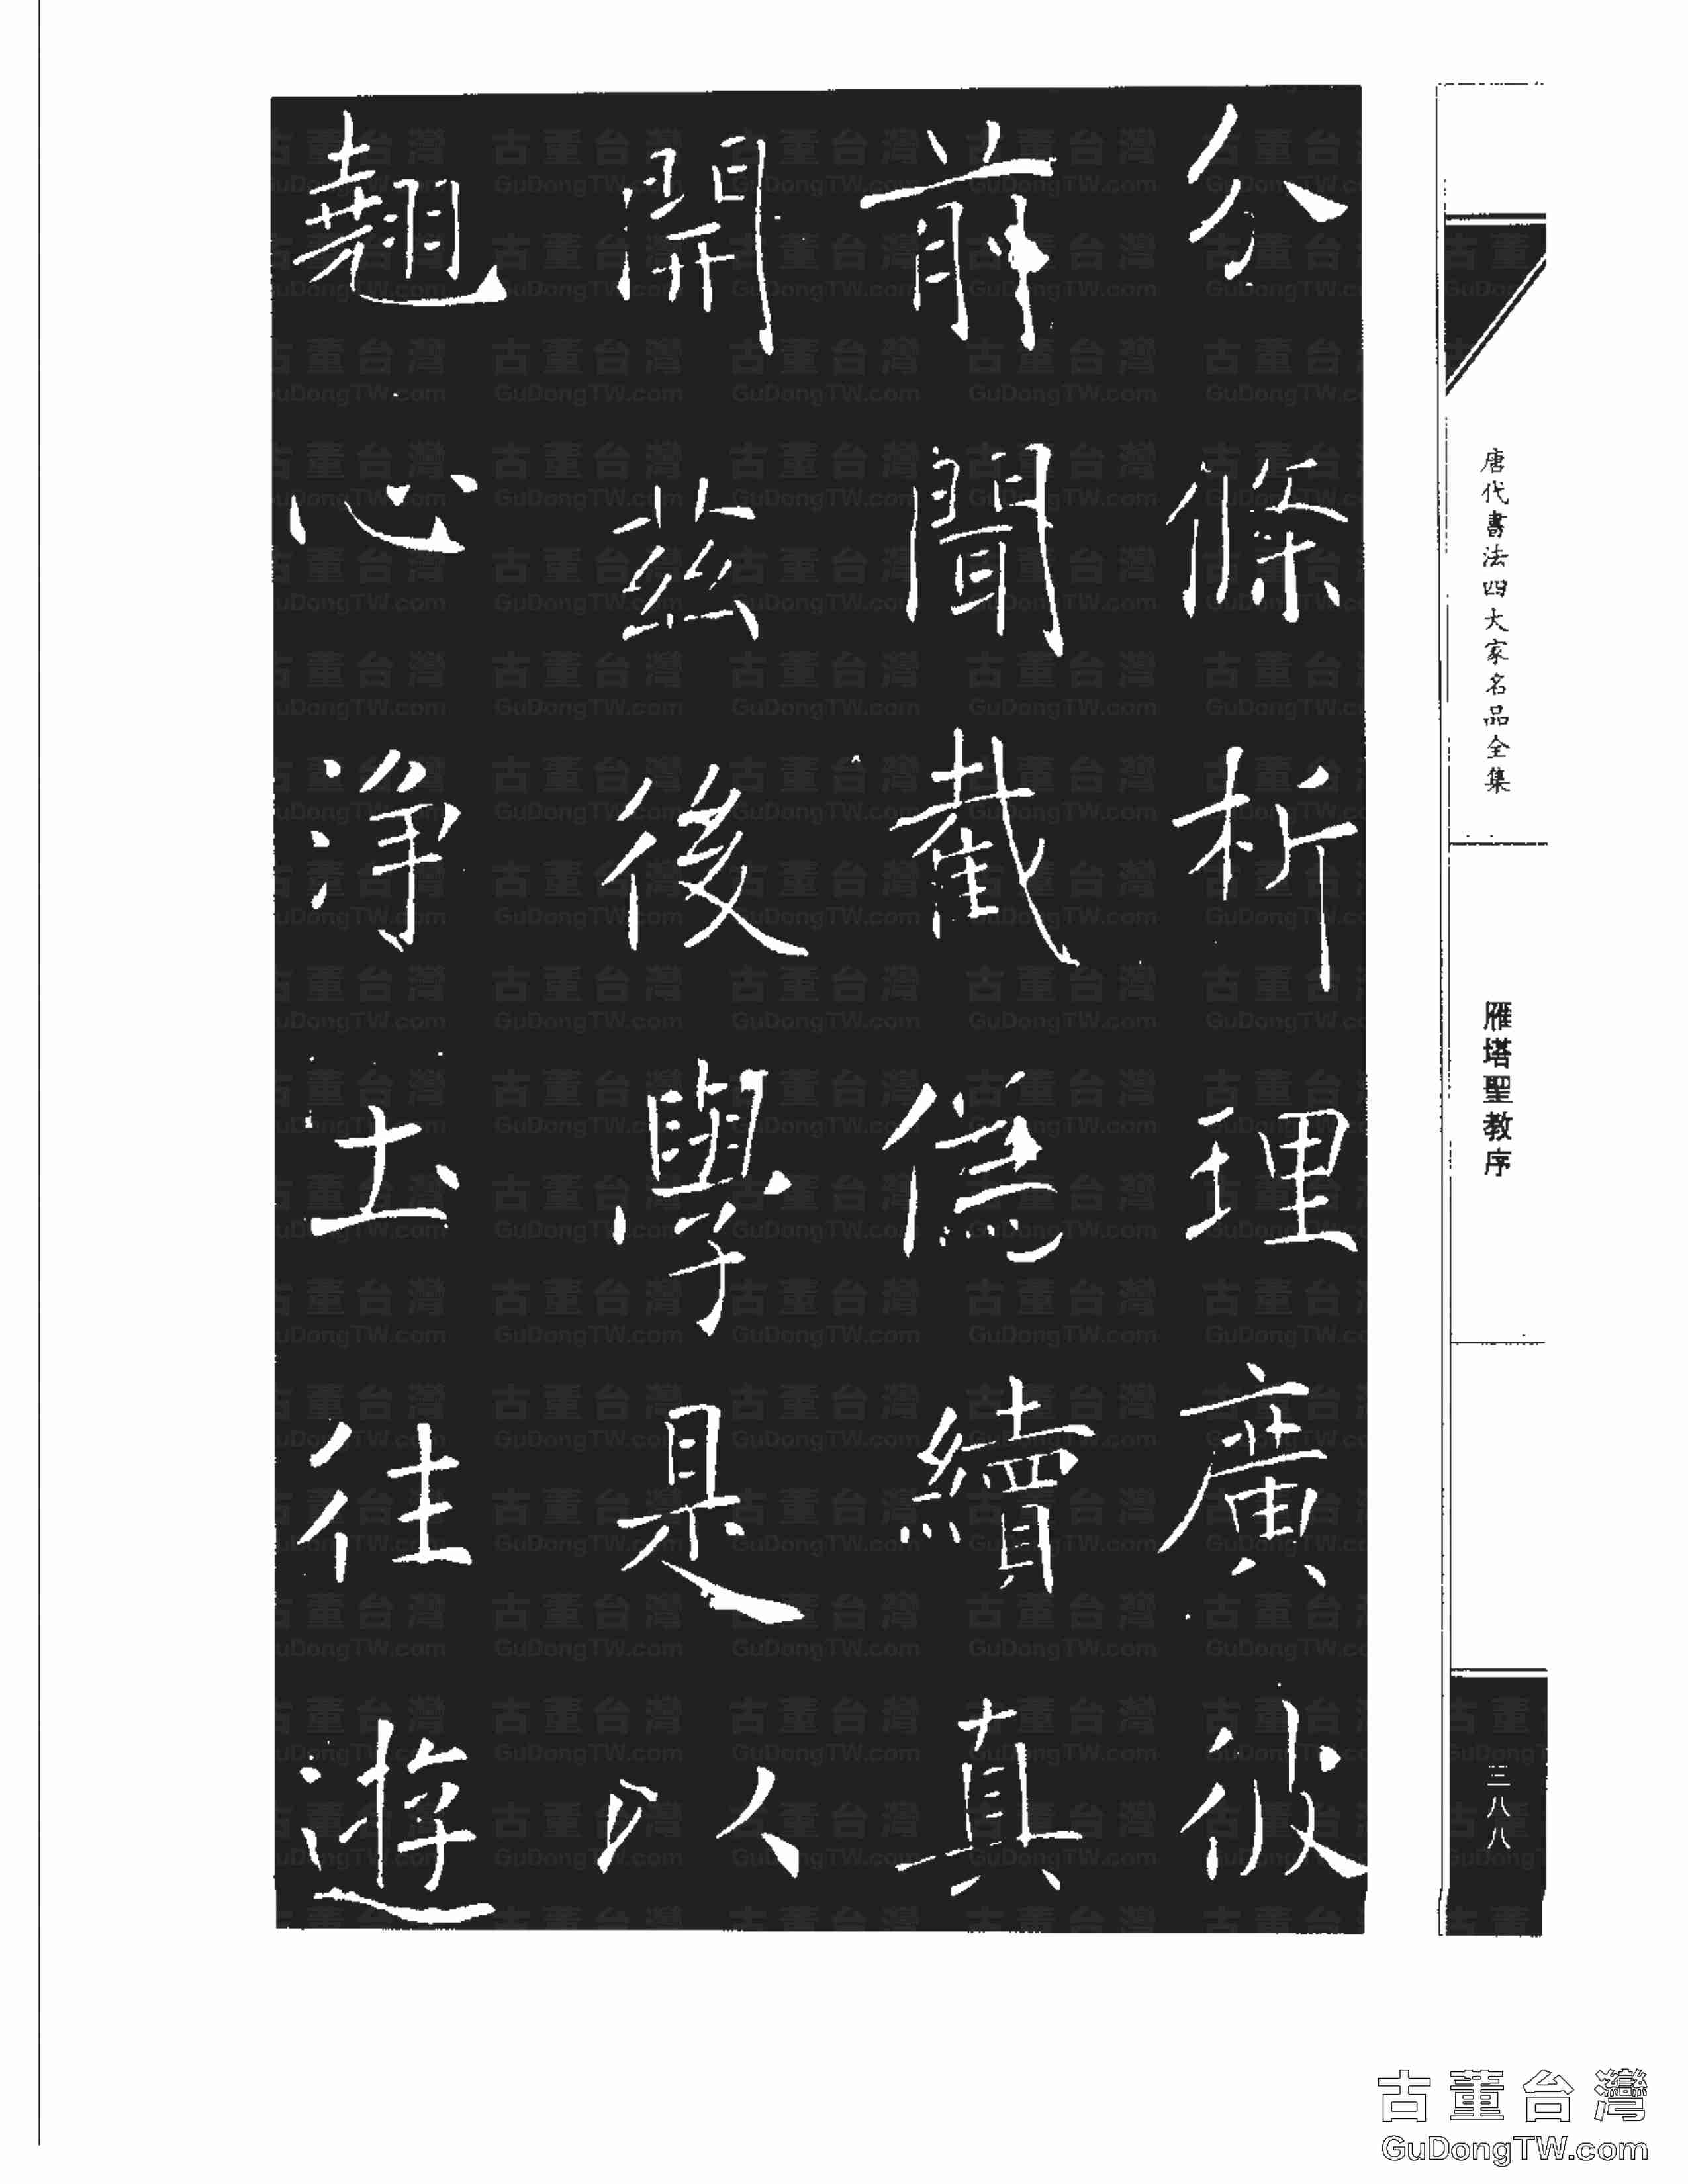 唐代書法四大家名品全集
雁塔聖教序
三八八
分條析理廣彼
前聞截偽續真
開茲後學是以
翹心淨土往遊
古董台灣
GuDongTW.com